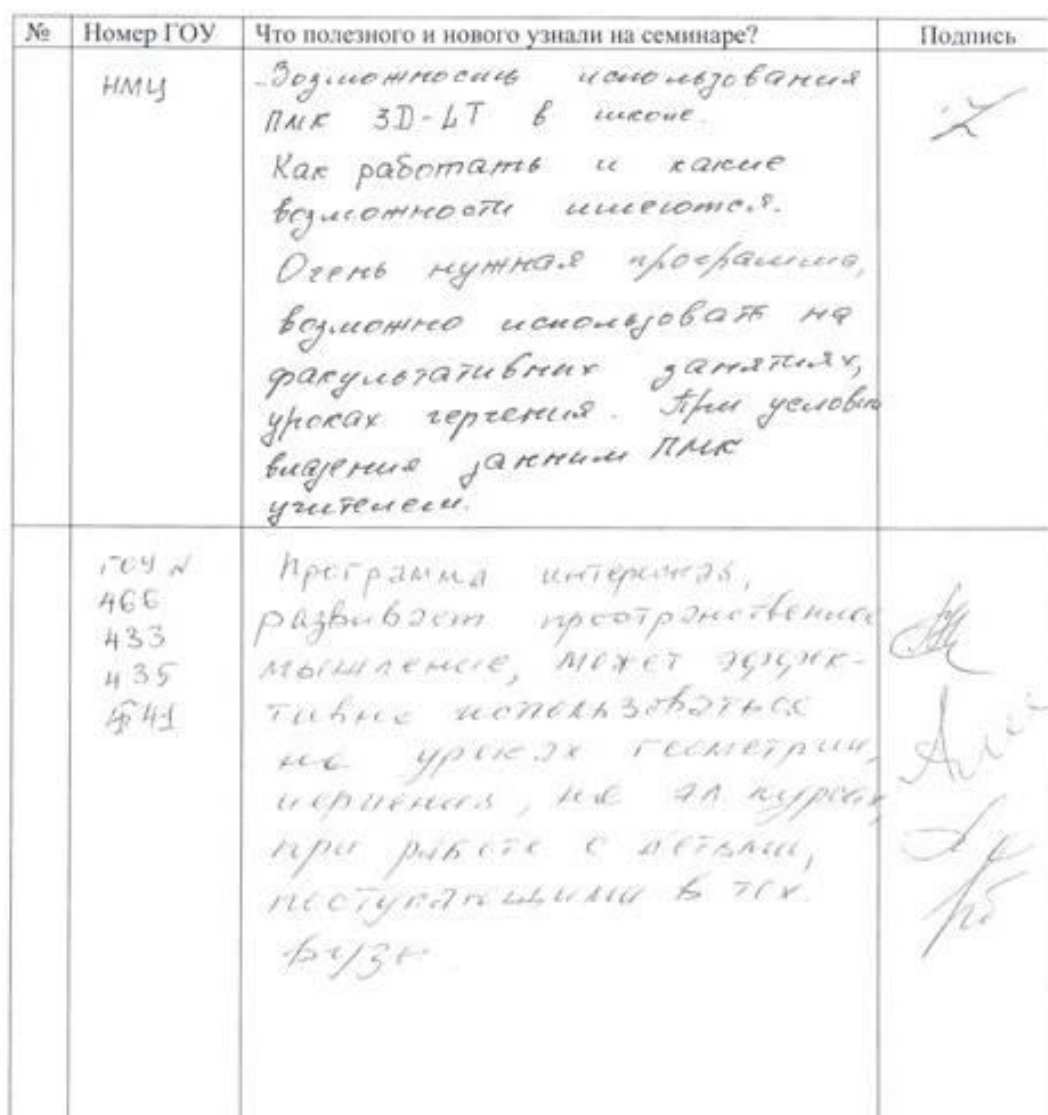 № Номер ГОУ Что полезного и нового узнали на семинаре? Подпись
НМЦ
Возможность использования
ПМК 3D-LT в школе.
Как работать и какие
возможности имеются.
Очень нужная программа,
возможно использовать на
факультативних занятиях,
уроках черчения. При условии
владения данним ПМК
учителем.
ГОУ N
466
433
435
541
Программа интересная,
развивает пространственное
мышление, может эффек-
тивно использоваться
на уроках геометрии,
черчения, на эл. курсах,
при работе с детьми,
поступающими в тех.
вузы.